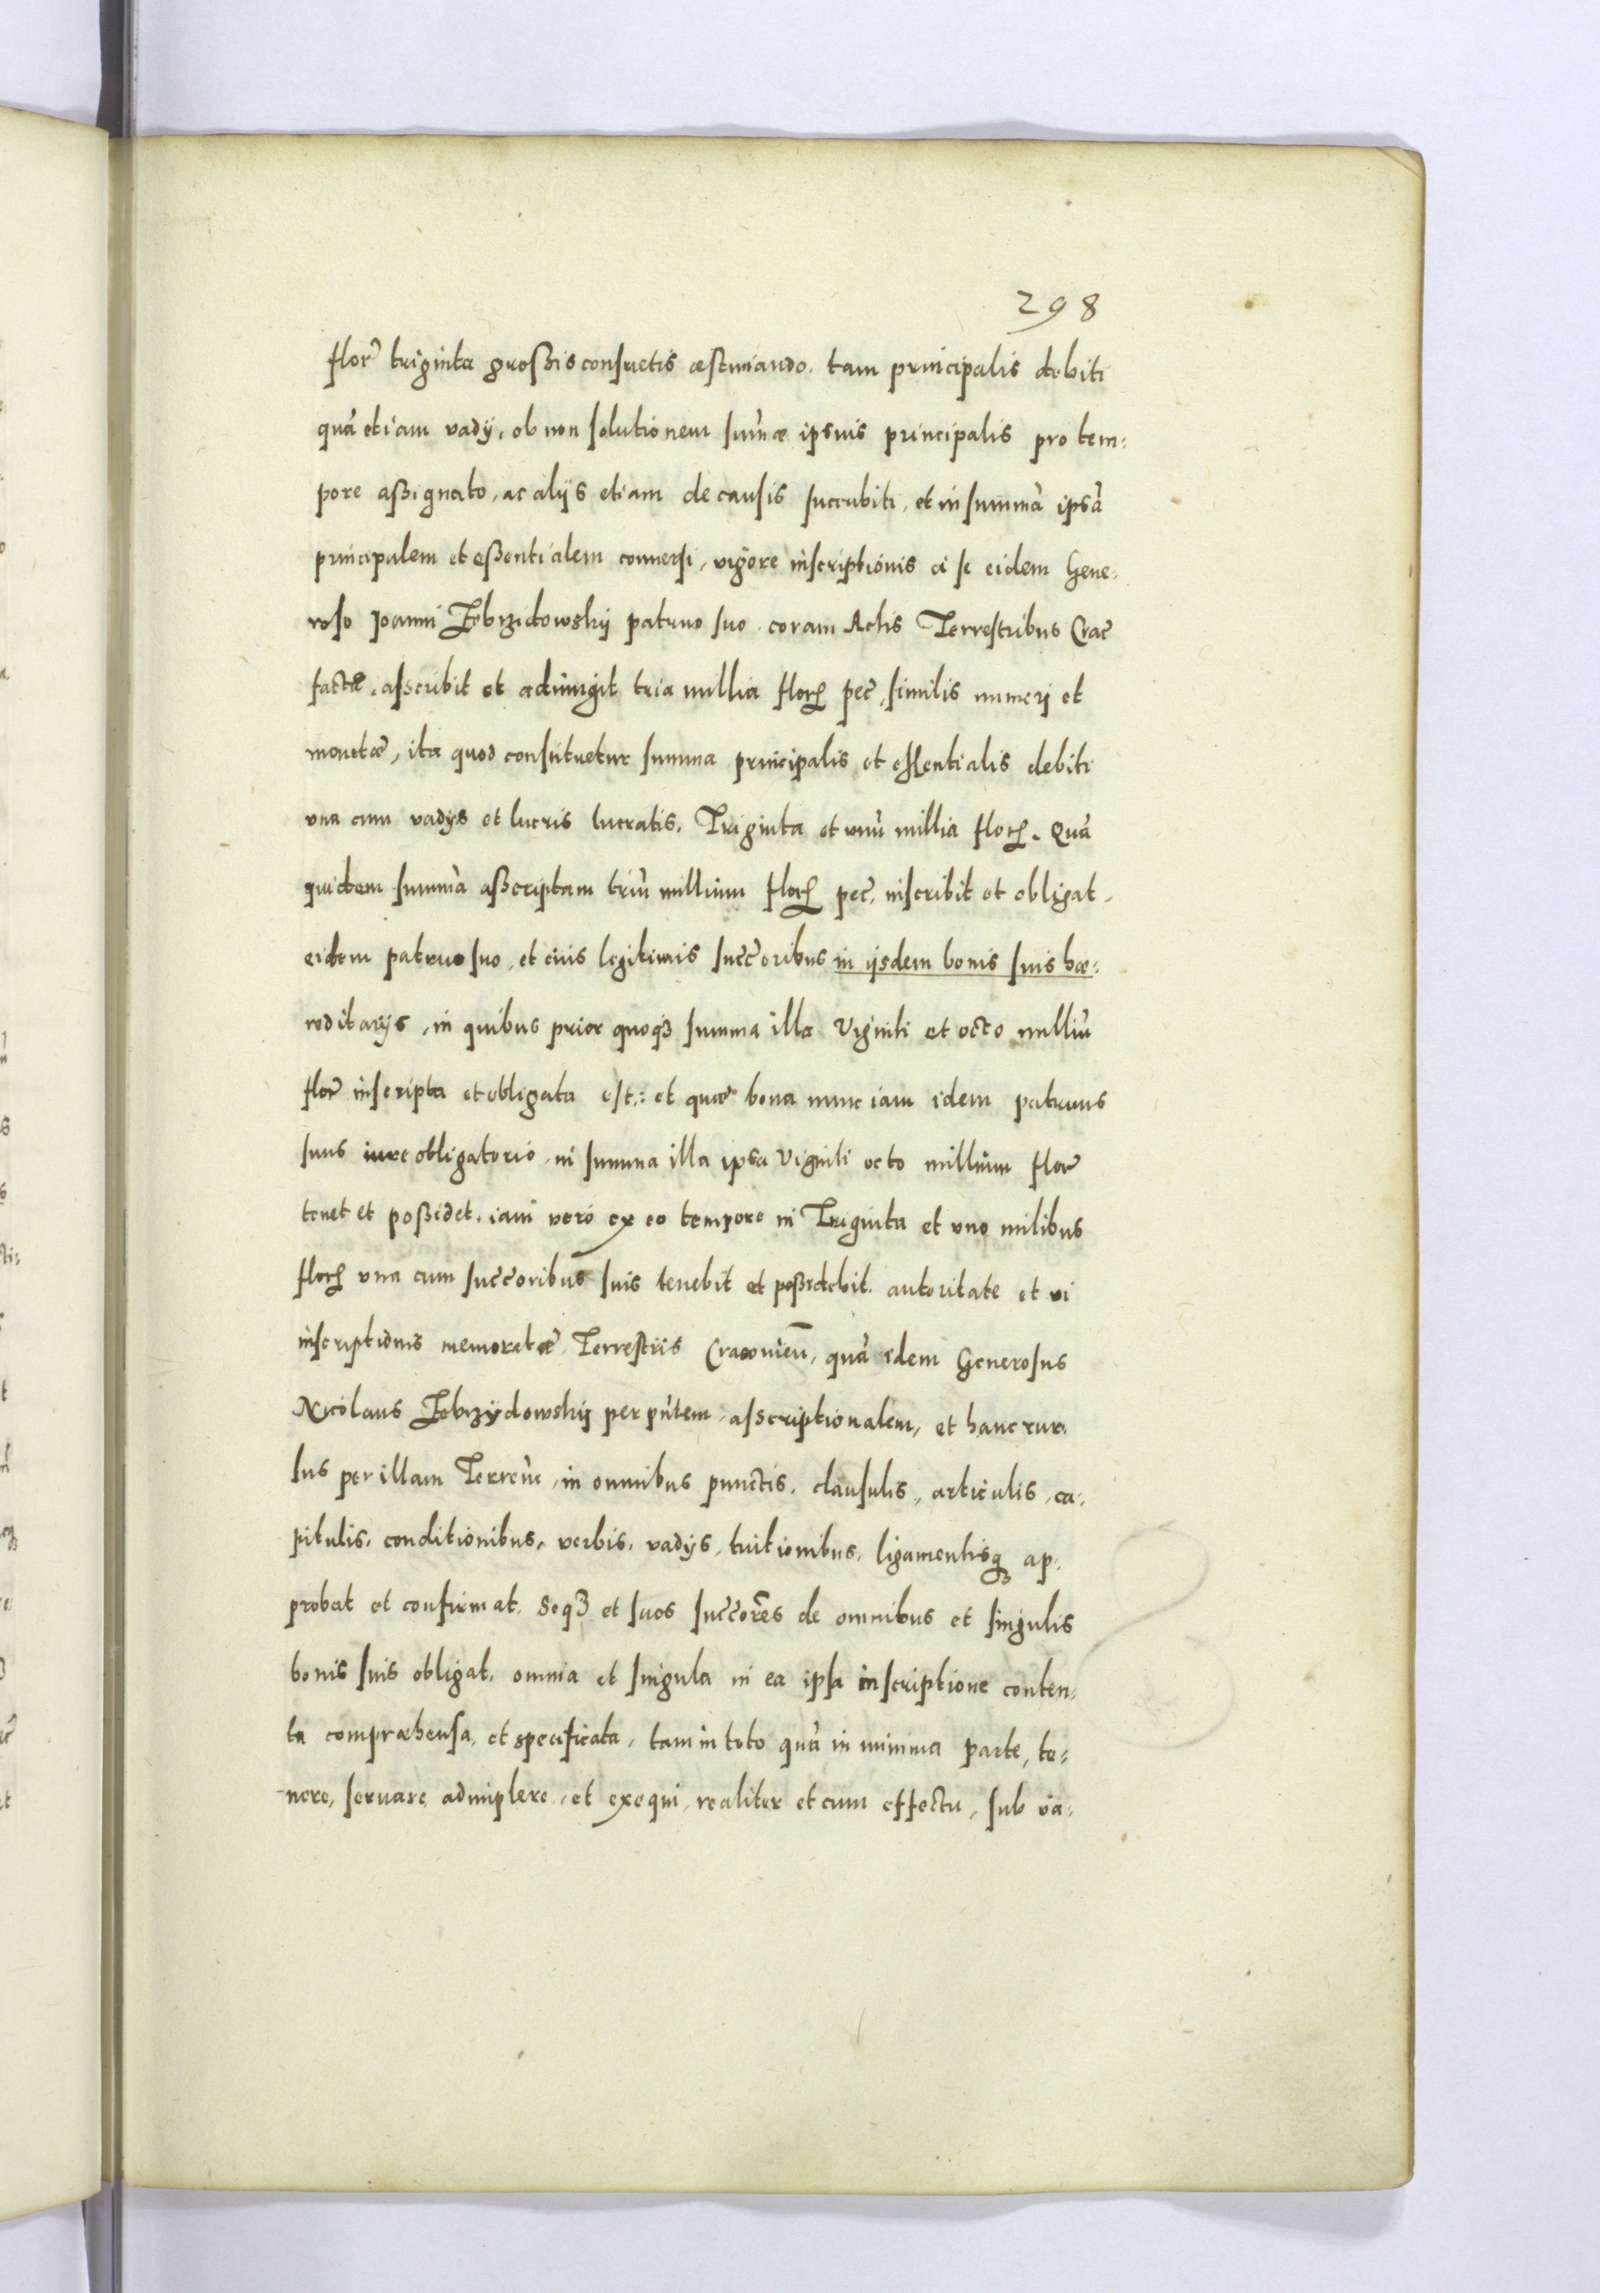 298
flor̃ triginta großis consuetis æstimando. tam principalis debiti
quã etiam vadÿ, ob non solutionem sum̃æ ipsius principalis pro tem:
pore aßignato, ac alijs etiam de causis succubiti, et in summã ipsã
principalem et eßentialem conuersi, vigore inscriptionis a se eidem Gene:
roso Joanni Zebrzidowskij patruo suo. coram Actis Terrestribus Crac̃
factæ, asscribit et adiungit tria millia floꝝ pec̃, similis numerj et
monetæ, ita quod constituetur summa principalis et essentialis debiti
vna cum vadÿs et lucris lucratis, Triginta et vnũ millia floꝝ. Quã
quidem summã aßcriptam triũ millium floꝝ pec̃. inscribit et obligat,
eidem patruo suo, et eius legitimis succ̃oribus in ijsdem bonis suis hæ:
reditarijs, in quibus prior quoqȝ summa illa Viginti et octo milliũ
flor̃ inscripta et obligata est: et quæ bona nunc iam idem patruus
suus iure obligatorio, in summa illa ipsa Viginti octo millium flor̃
tenet et poßidet. iam vero ex eo tempore in Triginta et vno milibus
floꝝ vna cum succ̃oribus suis tenebit et poßidebit. autoritate et vi
inscriptionis memoratæ Terrestris Cracovieñ, quã idem Generosus
Nicolaus Zebrzÿdowskij per pñtem, asscriptionalem, et hanc rur:
sus per illam Terreñ, in omnibus punctis, clausulis, articulis, ca:
pitulis, conditionibus, verbis, vadÿs, tuitionibus, ligamentisqȝ ap:
probat et confirmat. Seqȝ et suos succ̃ores de omnibus et singulis
bonis suis obligat. omnia et singula in ea ipsa inscriptione conten:
ta compræhensa, et specificata, tam in toto quã in minima parte, te:
nere, seruare adimplere, et exequi, realiter et cum effectu, sub va: